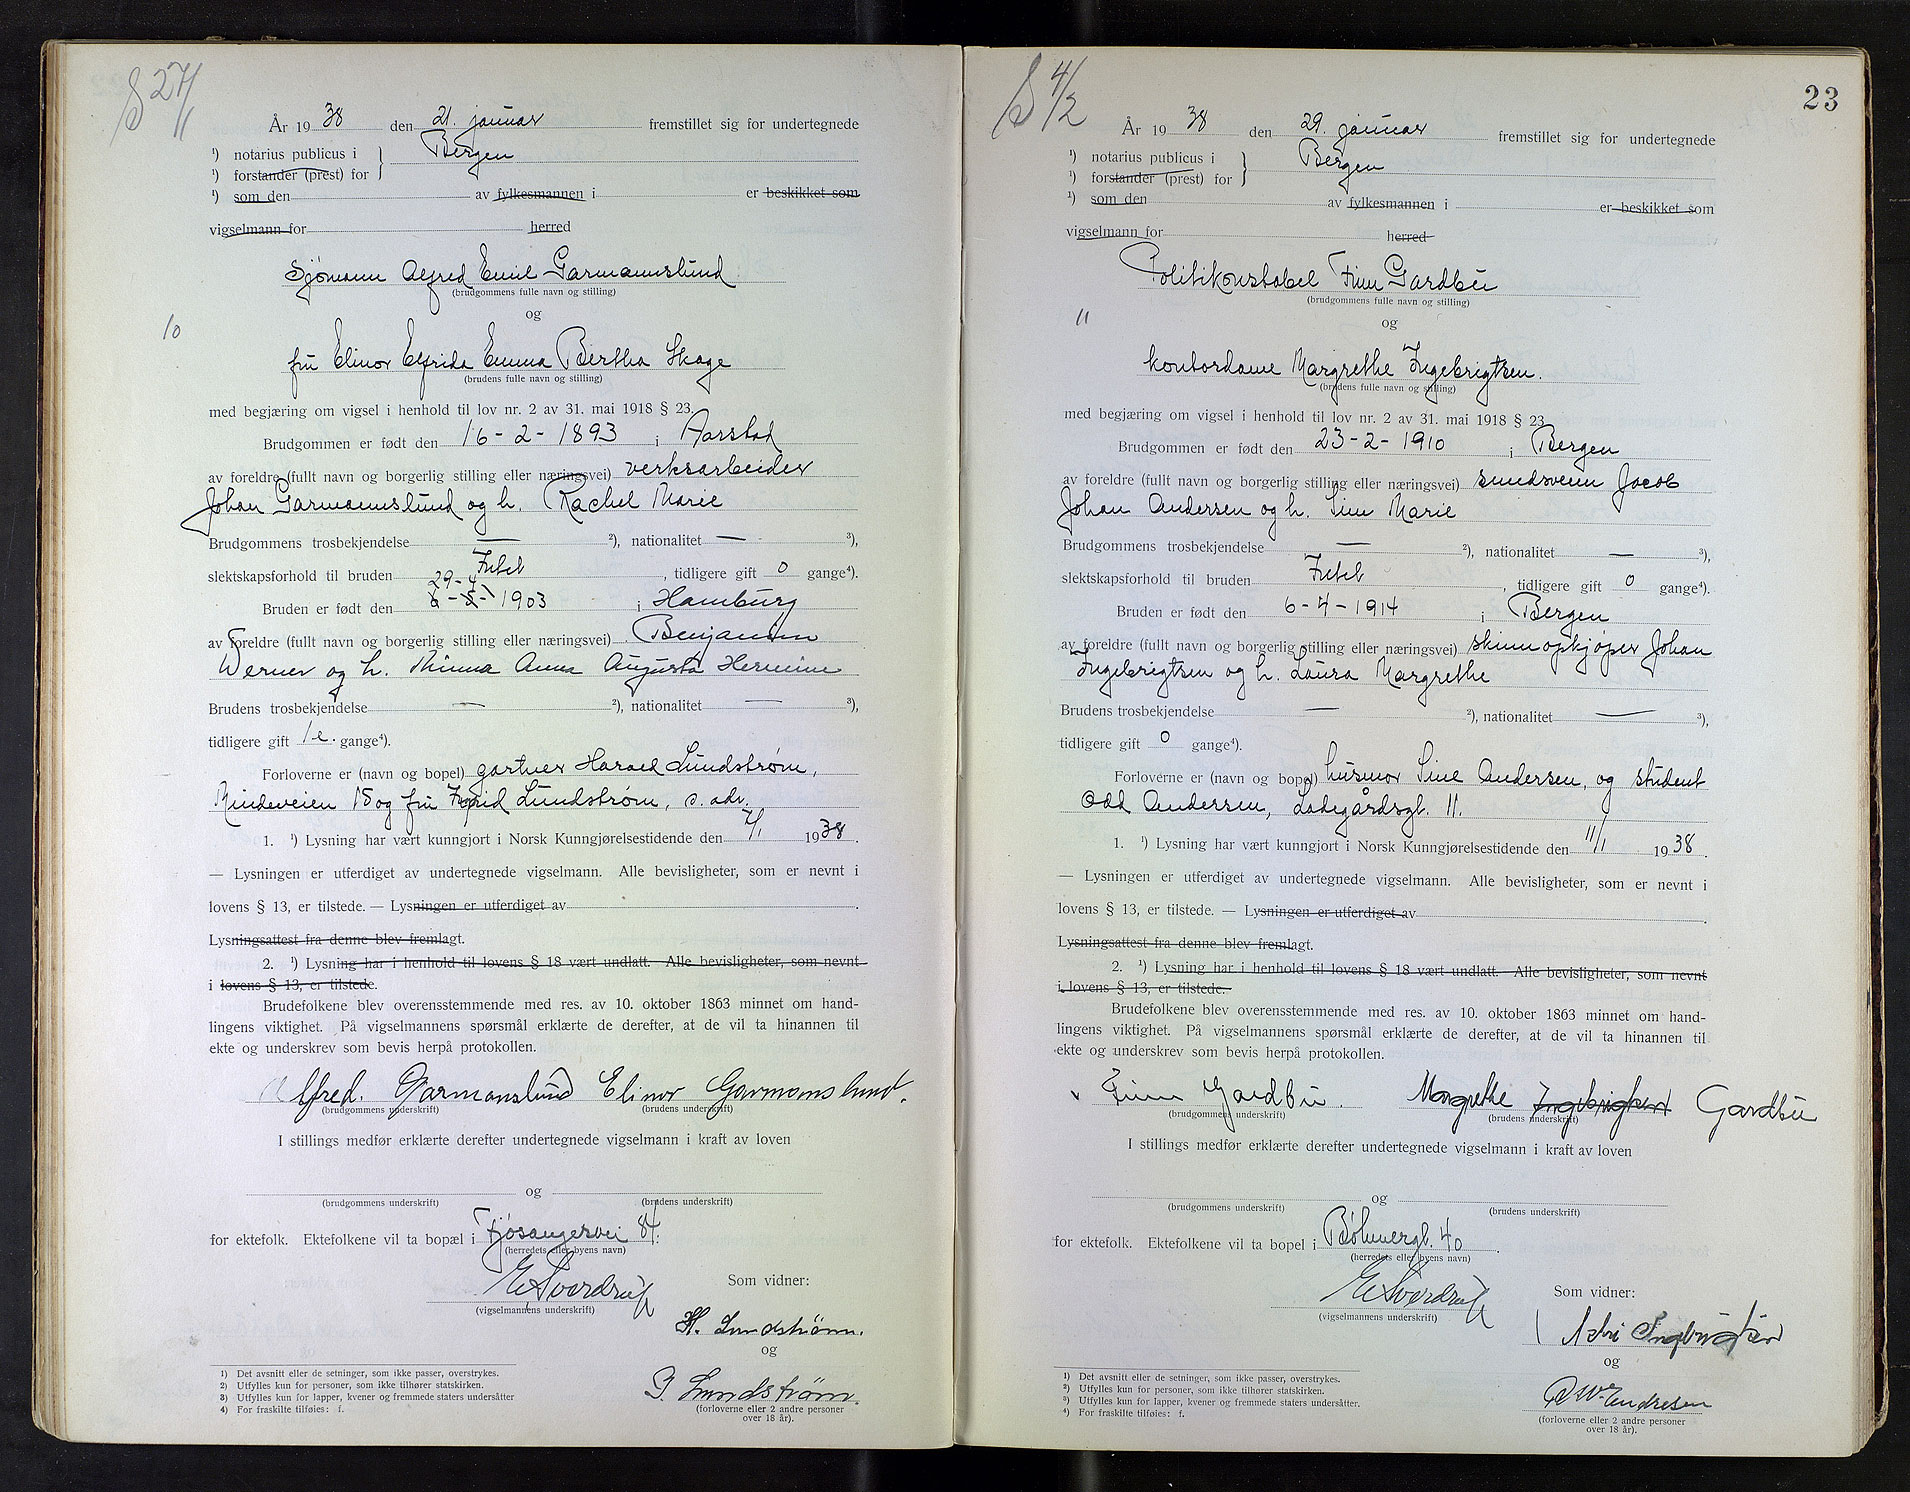 S 27/1
År 19 38 den 21. januar fremstillet sig for undertegnede
¹) notarius publicus i } Bergen
¹) forstander (prest) for
¹) som den av fylkesmannen i er beskikket som
vigselmann for herred
Sjømann Alfred Emil Garmannslund
(brudgommens fulle navn og stilling)
og
10
fru Elinor Elfrida Emma Bertha Skage
(brudens fulle navn og stilling)
med begjæring om vigsel i henhold til lov nr. 2 av 31. mai 1918 § 23.
Brudgommen er født den 16-2-1893 i Aarstad
av foreldre (fullt navn og borgerlig stilling eller næringsvei) verksarbeider
Johan Garmannslund og h. Rachel Marie
Brudgommens trosbekjendelse — ²), nationalitet — ³),
slektskapsforhold til bruden Intet, tidligere gift 0 gange⁴).
29-4-
Bruden er født den 6-5- 1903 i Hamburg
av foreldre (fullt navn og borgerlig stilling eller næringsvei) Benjamin
Werner og h. Minna Anna Augusta Hermine
Brudens trosbekjendelse — ²), nationalitet — ³),
tidligere gift 1 e. gange⁴).
Forloverne er (navn og bopel) gartner Harald Lundstrøm,
Mindeveien 15 og fru Lundstrøm, s. adr.
1. ¹) Lysning har vært kunngjort i Norsk Kunngjørelsestidende den 7/1 1938.
— Lysningen er utferdiget av undertegnede vigselmann. Alle bevisligheter, som er nevnt i
lovens § 13, er tilstede. — Lysningen er utferdiget av
Lysningsattest fra denne blev fremlagt.
2. ¹) Lysning har i henhold til lovens § 18 vært undlatt. Alle bevisligheter, som nevnt
i lovens § 13, er tilstede.
Brudefolkene blev overensstemmende med res. av 10. oktober 1863 minnet om hand-
lingens viktighet. På vigselmannens spørsmål erklærte de derefter, at de vil ta hinannen til
ekte og underskrev som bevis herpå protokollen.
Alfred. Garmanslund Elinor Garmanslund.
(brudgommens underskrift) (brudens underskrift)
I stillings medfør erklærte derefter undertegnede vigselmann i kraft av loven
og
(brudgommens underskrift) (brudens underskrift)
for ektefolk. Ektefolkene vil ta bopæl i Fjøsangervei 84.
(herredets eller byens navn)
E. Sverdrup
(vigselmannens underskrift)
Som vidner:
H. Lundstrøm.
og
I Lundstrøm.
(forloverne eller 2 andre personer
over 18 år).
1) Det avsnitt eller de setninger, som ikke passer, overstrykes.
2) Utfylles kun for personer, som ikke tilhører statskirken.
3) Utfylles kun for lapper, kvener og fremmede staters undersåtter
4) For fraskilte tilføies: f.
S 4/2
23
År 19 38 den 29. januar fremstillet sig for undertegnede
¹) notarius publicus i } Bergen
¹) forstander (prest) for
¹) som den av fylkesmannen i er beskikket som
vigselmann for herred
Politikonstabel Finn Gardbu
(brudgommens fulle navn og stilling)
11
og
kontordame Margrethe Ingebrigtsen.
(brudens fulle navn og stilling)
med begjæring om vigsel i henhold til lov nr. 2 av 31. mai 1918 § 23
Brudgommen er født den 23-2-1910 i Bergen
av foreldre (fullt navn og borgerlig stilling eller næringsvei) Jacob
Johan Andersen og h. Sine Marie
Brudgommens trosbekjendelse — ²), nationalitet — ³),
slektskapsforhold til bruden Intet, tidligere gift 0 gange⁴).
Bruden er født den 6-4-1914 i Bergen
av foreldre (fullt navn og borgerlig stilling eller næringsvei) skinnopkjøper Johan
Ingebrigtsen og h. Laura Margrethe
Brudens trosbekjendelse — ²), nationalitet — ³),
tidligere gift 0 gange⁴).
Forloverne er (navn og bopel) husmor Sine Andersen, og student
Odd Andersen, Ladegårdsgt. 11.
1. ¹) Lysning har vært kunngjort i Norsk Kunngjørelsestidende den 11/1 1938.
— Lysningen er utferdiget av undertegnede vigselmann. Alle bevisligheter, som er nevnt i
lovens § 13, er tilstede. — Lysningen er utferdiget av
Lysningsattest fra denne blev fremlagt.
2. ¹) Lysning har i henhold til lovens § 18 vært undlatt. Alle bevisligheter, som nevnt
i lovens § 13, er tilstede.
Brudefolkene blev overensstemmende med res. av 10. oktober 1863 minnet om hand-
lingens viktighet. På vigselmannens spørsmål erklærte de derefter, at de vil ta hinannen til
ekte og underskrev som bevis herpå protokollen.
Finn Gardbu. Margrethe Ingebrigtsen Gardbu
(brudgommens underskrift) (brudens underskrift)
I stillings medfør erklærte derefter undertegnede vigselmann i kraft av loven
og
(brudgommens underskrift) (brudens underskrift)
for ektefolk. Ektefolkene vil ta bopel i Bøhmergt. 40.
(herredets eller byens navn)
E. Sverdrup
(vigselmannens underskrift)
Som vidner:
Ingebrigtsen
og
Andresen
(forloverne eller 2 andre personer
over 18 år).
1) Det avsnitt eller de setninger, som ikke passer, overstrykes.
2) Utfylles kun for personer, som ikke tilhører statskirken.
3) Utfylles kun for lapper, kvener og fremmede staters undersåtter.
4) For fraskilte tilføies: f.